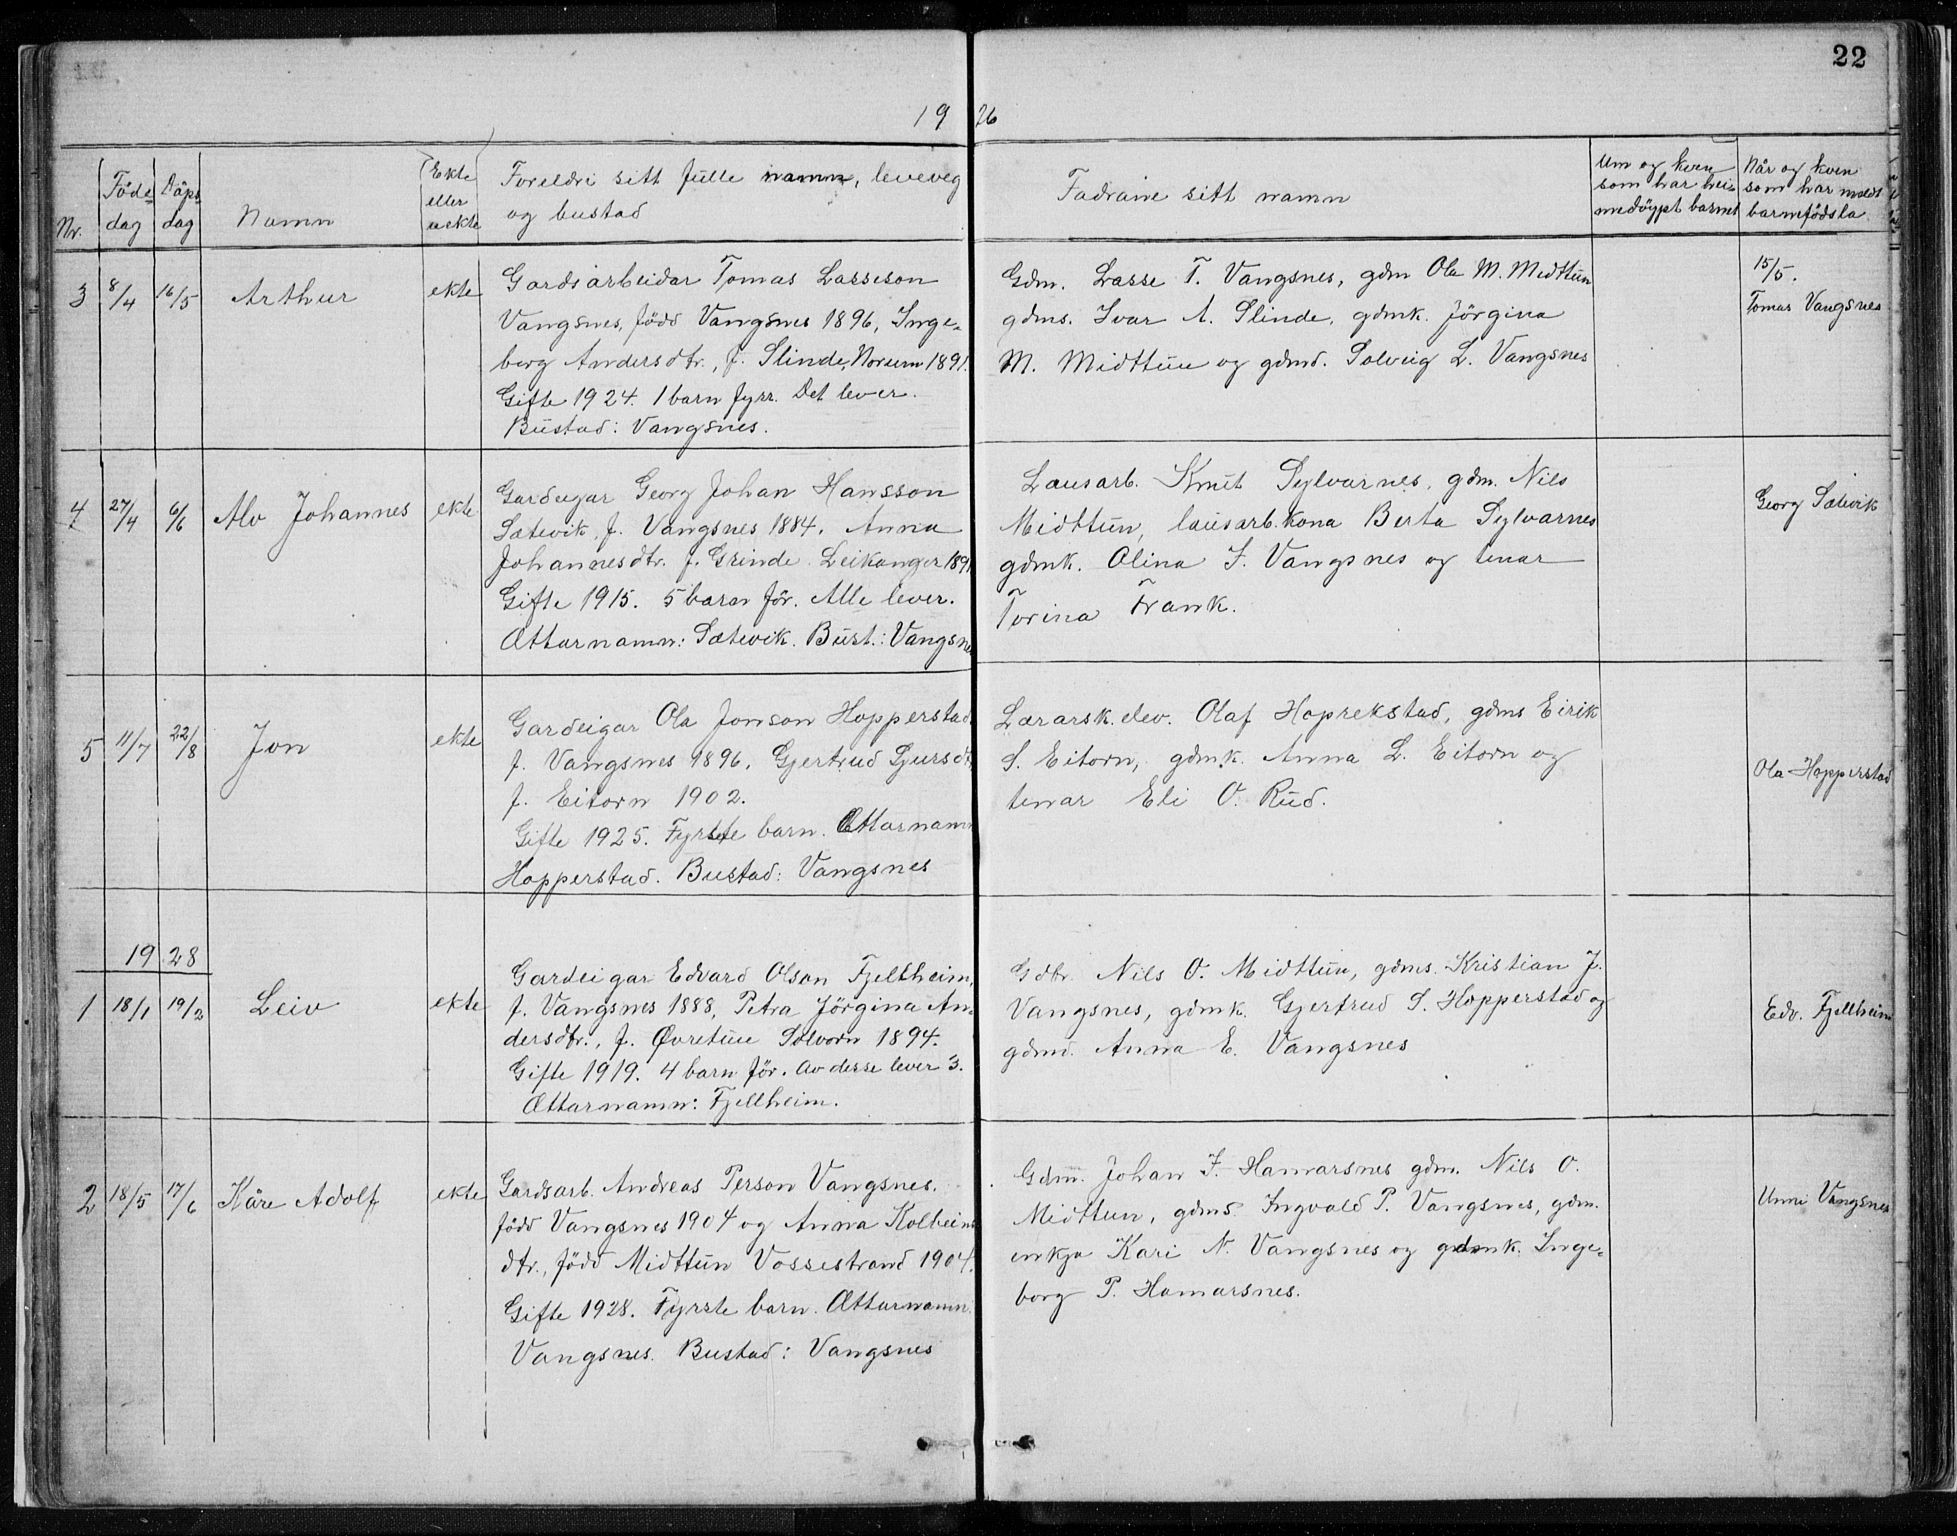 22
1926
Nr.
Föde-
dag
Däps
dag
Namn
Ekte
eller
uekte
Foreldri sitt fulle namn, leveveg
og bustad
Fadrane sitt namn
Um og kven
som har hei-
medöypt barnet
Når og kven
som har meldt
barnefödsla
3
8/4
16/5
Arthur
ekte
Gardsarbeidar Tomas Lasseson
Vangsnes, född Vangsnes 1896, Inge-
borg Andersdtr., f. Slinde, Norum 1891.
Gifte 1924. 1 barn fyrr. Det lever.
Bustad: Vangsnes.
Gdm. Lasse T. Vangsnes, gdm Ola M. Midttun
gdms. Ivar A. Slinde, gdmk. Jörgina
M. Midttun og gdmd. Solveig L. Vangsnes
15/5.
Tomas Vangsnes
4
27/4
6/6
Alv Johannes
ekte
Gardeigar Georg Johan Hansson
Sætevik, f. Vangsnes 1884, Anna
Johannesdtr. f. Grinde Leikanger 1891
Gifte 1915. 5 barn för. Alle lever.
Ættarnamn: Sætevik. Bust.: Vangsnes
Lausarb. Knut Sylvarnes, gdm. Nils
Midttun, lausarb.kona Berta Sylvarnes
gdmk. Olina J. Vangsnes og tenar
Torina Frank.
Georg Sætevik
5
11/7
22/8
Jon
ekte
Gardeigar Ola Jonson Hopperstad,
f. Vangsnes 1896, Gjertrud Sjursdt,
f. Eitorn 1902.
Gifte 1925. Fyrste barn. Ættarnamn
Hopperstad. Bustad: Vangsnes
Lærarsk.elev. Olaf Hoprekstad, gdms Eirik
S. Eitorn, gdmk. Anna L. Eitorn og
tenar Eli O. Rud.
Ola Hopperstad
1928
1
18/1
19/2
Leiv
ekte
Gardeigar Edvard Olson Fjellheim,
f. Vangsnes 1888, Petra Jörgina An-
dersdtr., f. Øvretun Solvorn 1894.
Gifte 1919. 4 barn för. Av desse lever 3.
Ættarnamn: Fjellheim.
Gdbr. Nils O. Midttun, gdms. Kristian J.
Vangsnes, gdmk. Gjertrud S. Hopperstad og
gdmd. Anna E. Vangsnes
Edv. Fjellheim
2
18/5
17/6
Kåre Adolf
ekte
Gardsarb. Andreas Person Vangsnes,
född Vangsnes 1904 og Anna Kolbeins
dtr., född Midttun Vossestrand 1904.
Gifte 1928. Fyrste barn. Ættarnamn.
Vangsnes. Bustad: Vangsnes
Gdm. Johan J. Hamarsnes gdm. Nils O.
Midttun, gdms. Ingvald P. Vangsnes, gdm.
enkja Kari N. Vangsnes og gdmk. Inge-
borg P. Hamarsnes.
Unni Vangsnes